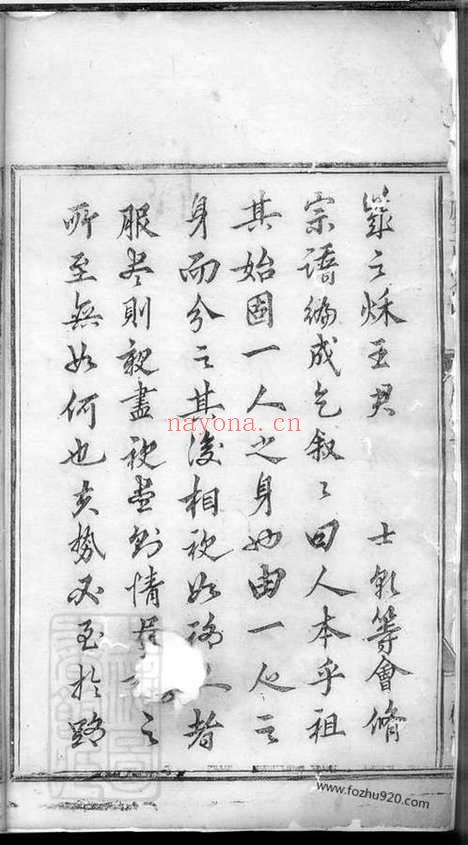 歲之秌王君 士 等會脩
宗譜編成乞叙叙曰人本乎祖
其始固一人之身也由一人之
身而分之其後相視如路人者
服盡則親盡親盡則情 之
所至無如何也夫勢必至於路
nayona.cn
www.fozhu920.com